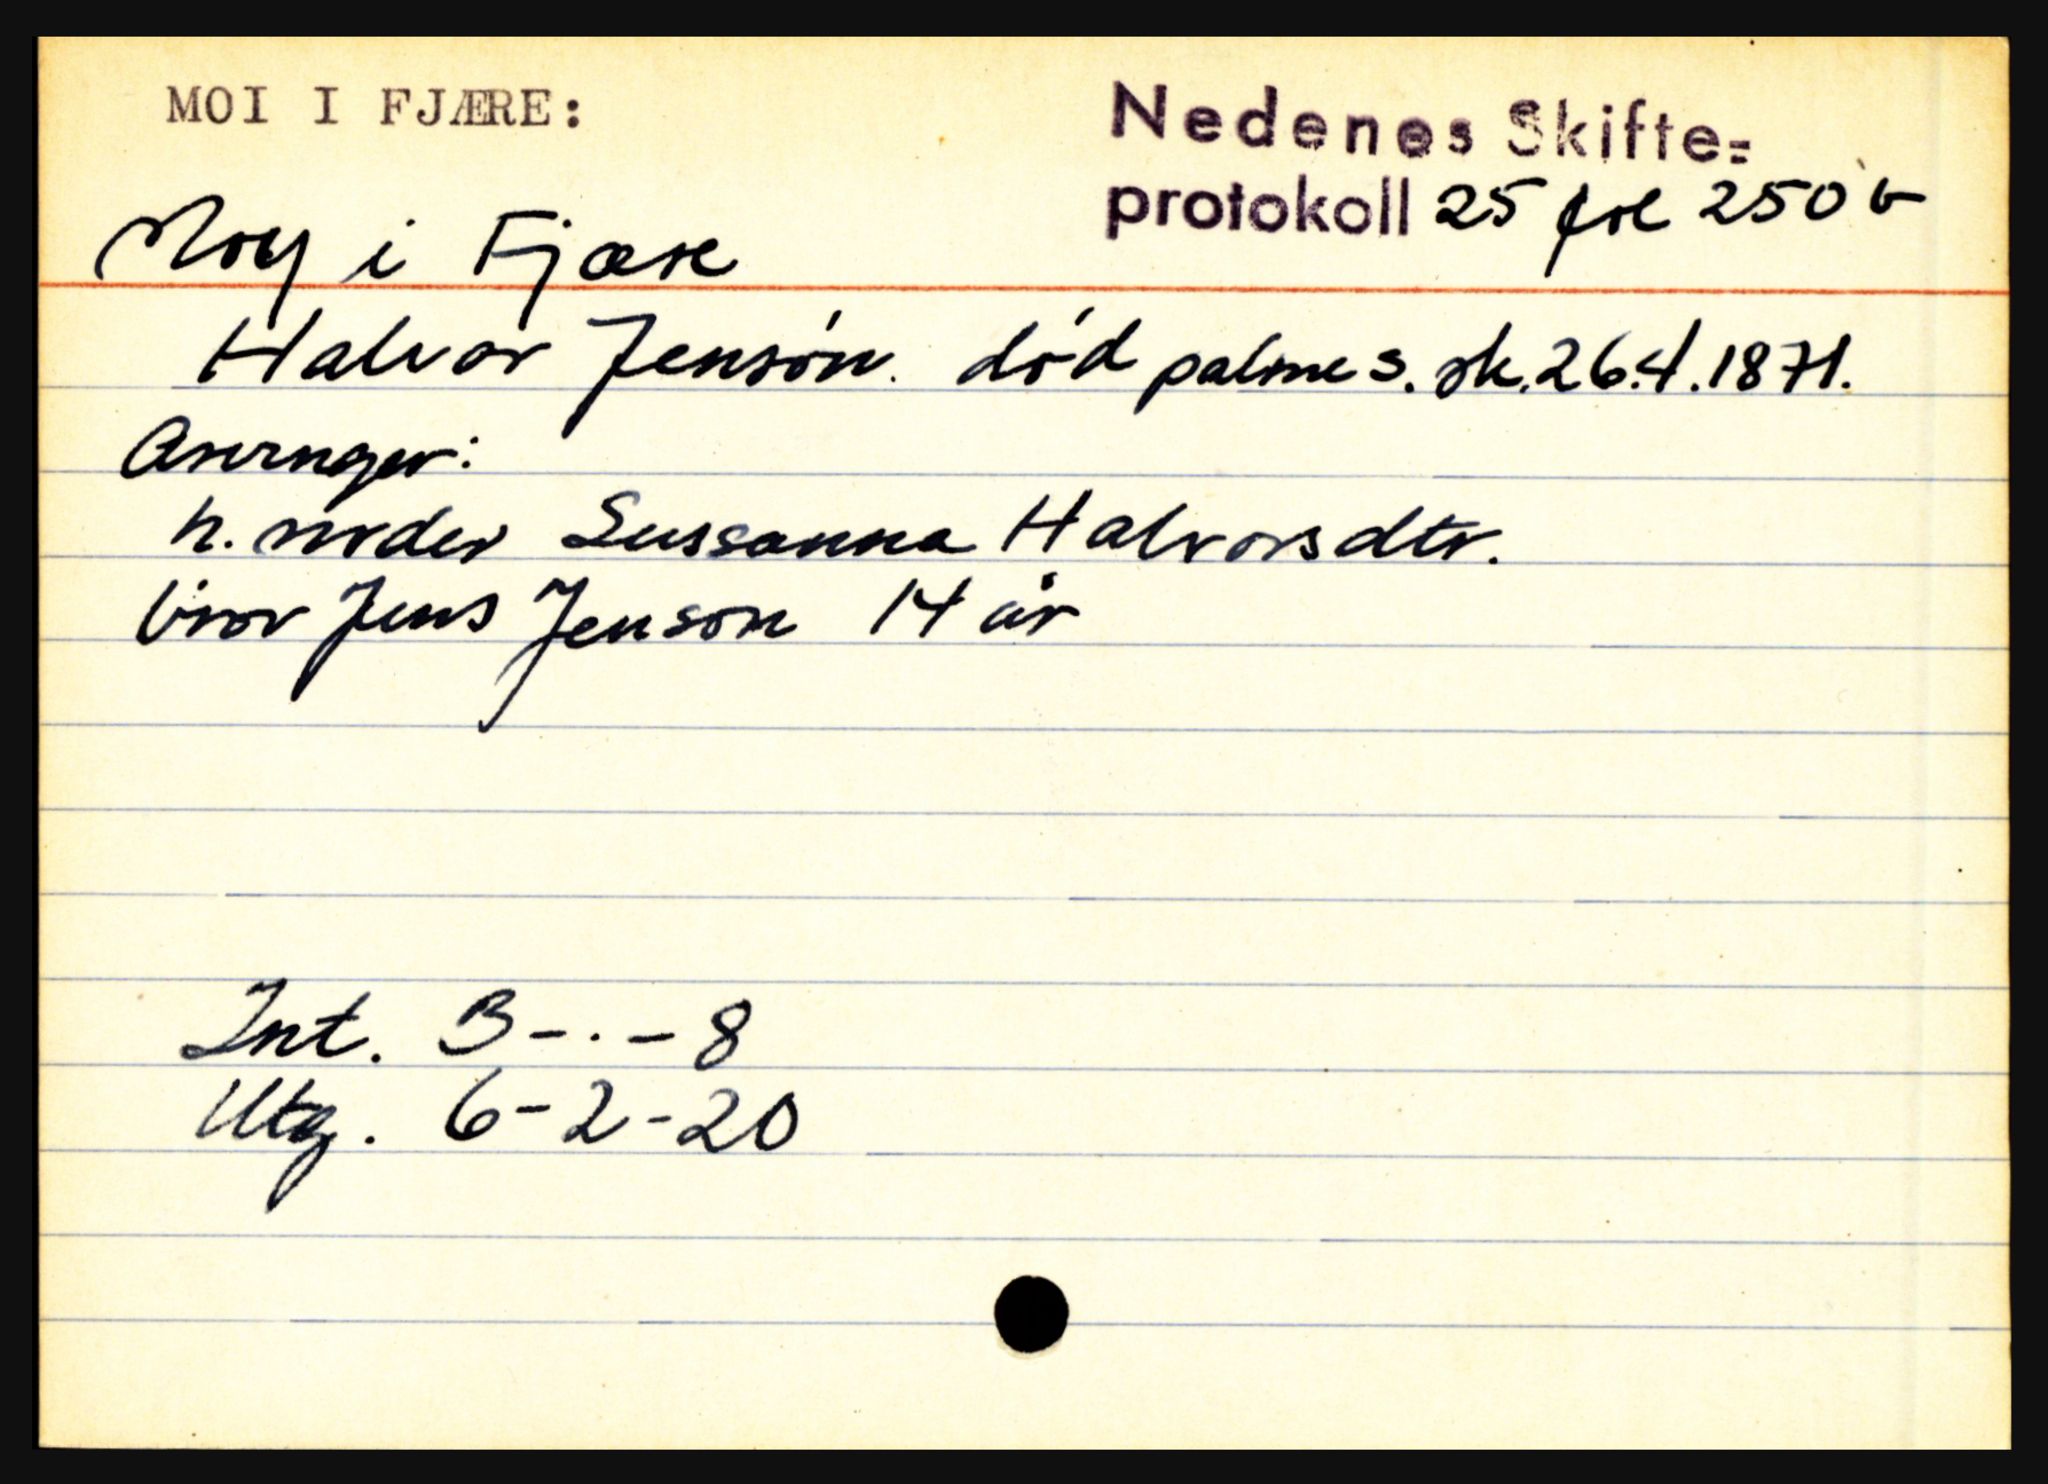 MOI I FJÆRE:
Nedenes Skifte=
protokoll 25 fol 250 b
Moy i Fjære
Halvor Jensøn. død palmes. sk. 26.4.1871.
Arvinger:
h. moder Sussanna Halvorsdtr.
bror Jens Jenson 14 år
Int. 3-.-8
Utg. 6-2-20